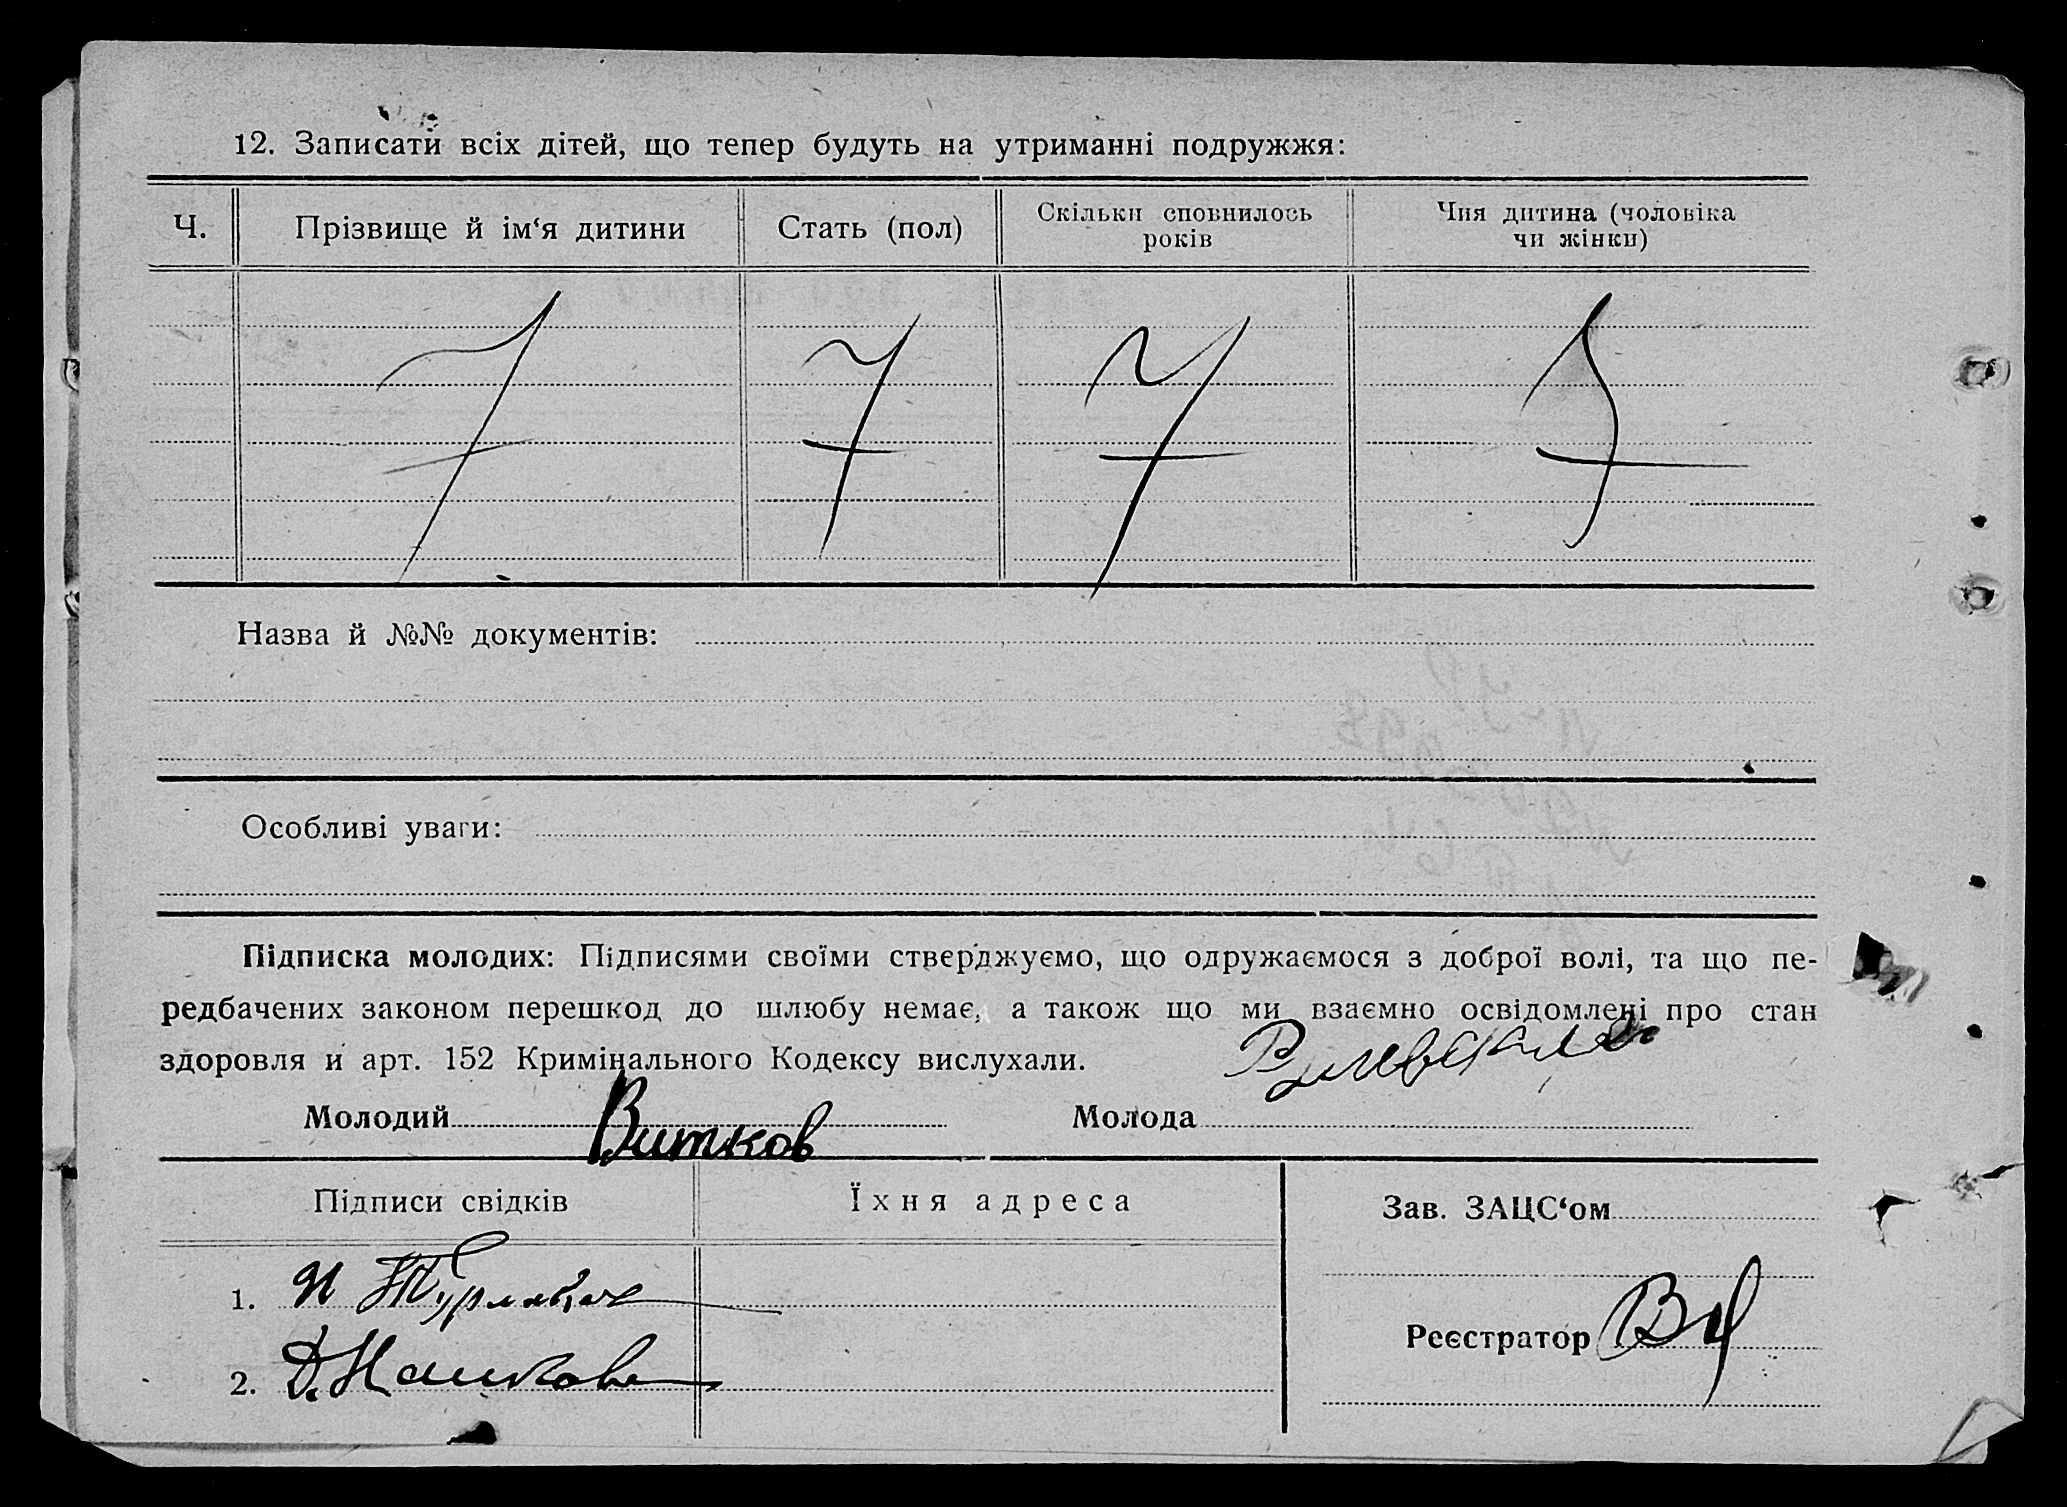 12. Записати всіх дітей, що тепер будуть на утриманні подружжя:
Ч. Прізвище й ім‘я дитини Стать (пол) Скільки сповнилось років Чия дитина (чоловіка чи жінки)
Назва й №№ документів:
Особливі уваги:
Підписка молодих: Підписями своїми стверджуємо, що одружаємося з доброї волі, та що пе-
редбачених законом перешкод до шлюбу немає, а також що ми взаємно освідомлені про стан
здоровля й арт. 152 Кримінального Кодексу вислухали.
Молодий Витков Молода
Підписи свідків Їхня адреса Зав. ЗАЦС‘ом
1.
Реєстратор
2. Д.